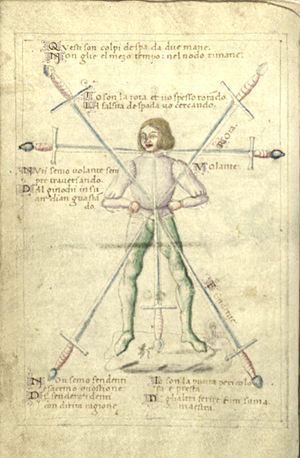 Questi son colpi de spada da due mane
Non gue el mezo tempo: nel nodo rimane:
Io son la rota et vo spesso rotado
La falsita de spada vo cercando.
Rota.
Volante.
Nui semo volante sem
pre traversando.
Dal ginochi in su
andian guasta
do.
Noi semo fendenti
e facemo questione
De fendere
con diritta ragione
Io son la punta pericolo
sa e presta
De glialtri soma
maestra